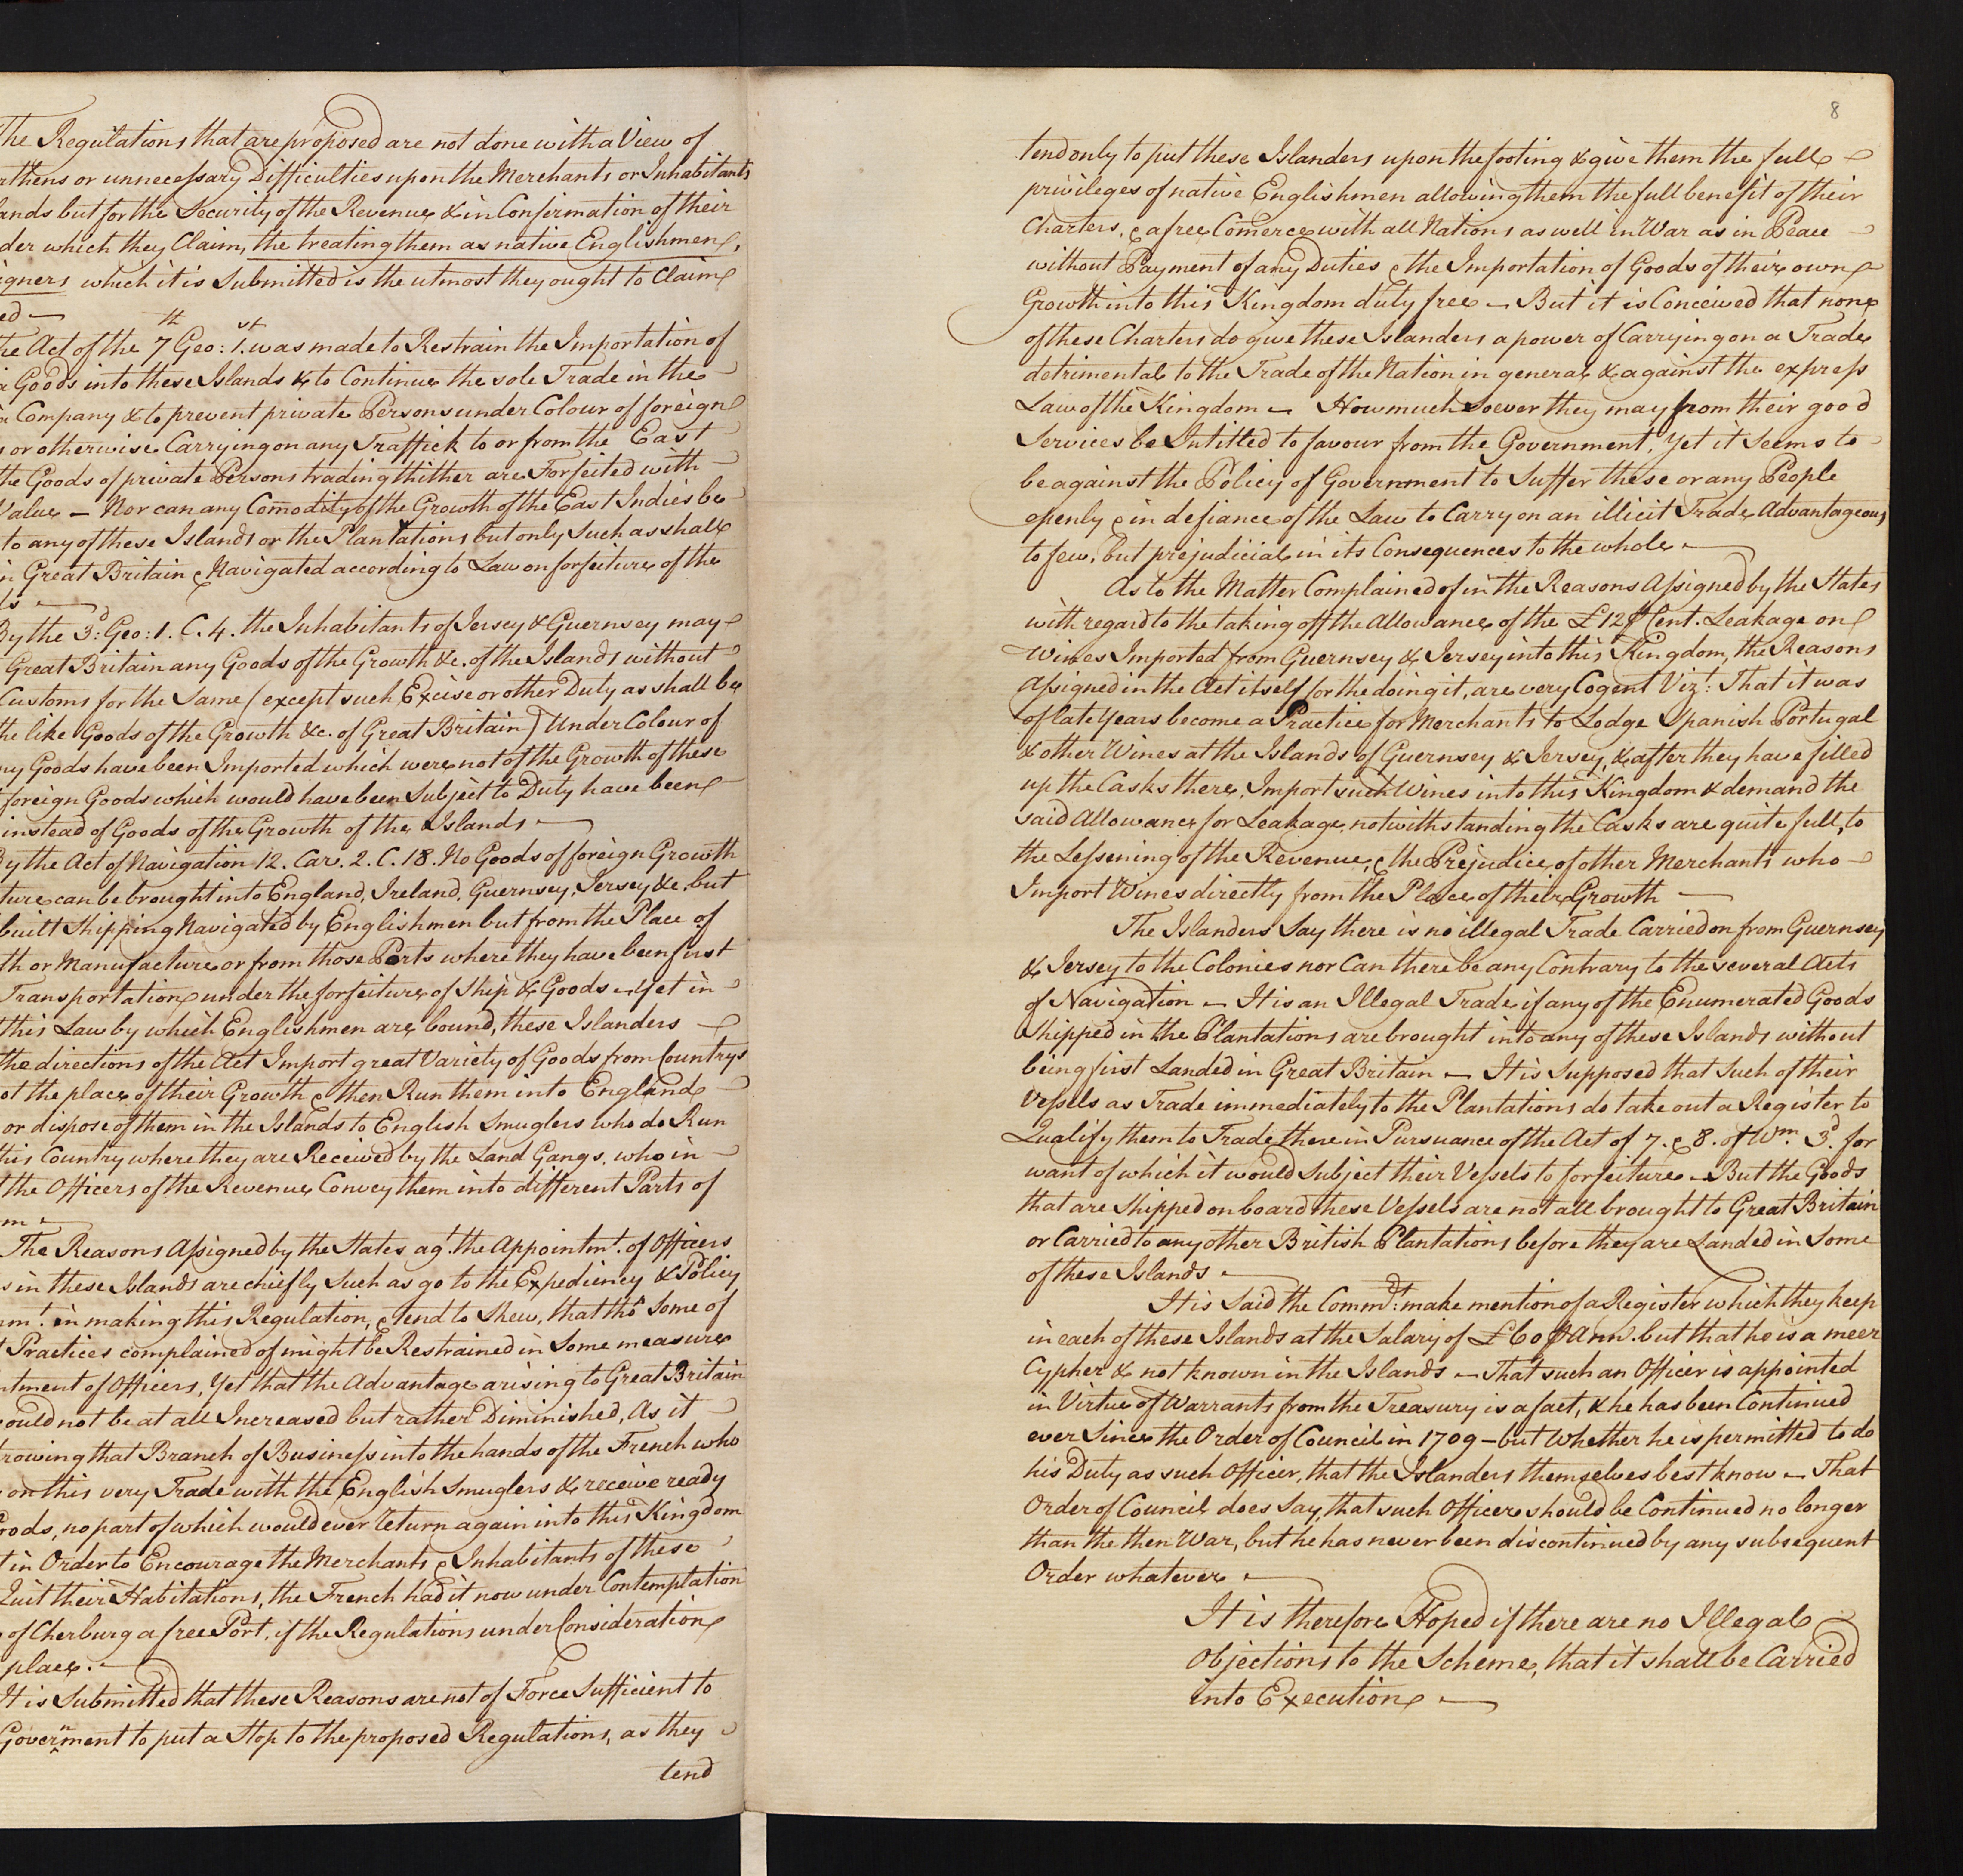 The Regulations that are proposed are not done with a View of
rthens or unnecessary Difficulties upon the Merchants or Inhabitants
lands but for the Security of the Revenue & in Confirmation of their
der which they Claim, the treating them as native Englishmen,
igners which it is Submitted is the utmost they ought to Claim
ed —
the Act of the 7th Geo: 1st. was made to Restrain the Importation of
a Goods into these Islands & to Continue the sole Trade in the
a Company & to prevent private Persons under Colour of foreign
s or otherwise Carrying on any Traffick to or from the East
the Goods of private Persons trading thither are Forfeited with
Value — Nor can any Comodity of the Growth of the East Indies be
to any of these Islands or the Plantations but only Such as shall
in Great Britain & Navigated according to Law on forfeiture of the
ds —
By the 3d: Geo: 1. C. 4. the Inhabitants of Jersey & Guernsey may
Great Britain any Goods of the Growth &c. of the Islands without
Customs for the Same (except such Excise or other Duty as shall be
the like Goods of the Growth &c. of Great Britain) Under Colour of
ny Goods have been Imported which were not of the Growth of these
foreign Goods which would have been Subject to Duty have been
instead of Goods of the Growth of the Islands —
By the Act of Navigation 12. Car. 2. C. 18. No Goods of foreign Growth
ture can be brought into England, Ireland, Guernsey, Jersey &c. but
built Shipping Navigated by Englishmen but from the Place of
th or Manufacture or from those Ports where they have been first
Transportation under the forfeiture of Ship & Goods — Yet in
this Law by which Englishmen are bound, these Islanders
the directions of the Act Import great Variety of Goods from Countrys
ot the place of their Growth & then Run them into England
or dispose of them in the Islands to English Smuglers who do Run
this Country where they are Received by the Land Gangs, who in
the Officers of the Revenue Convey them into different Parts of
m —
The Reasons Assigned by the States agt. the Appointmt. of Officers
s in these Islands are chiefly Such as go to the Expediency & Policy
nmt. in making this Regulation, & tend to Shew, that tho' Some of
Practices complained of might be Restrained in Some measure
ntment of Officers, Yet that the Advantage arising to Great Britain
ould not be at all Increased but rather Diminished, As it
rowing that Branch of Business into the hands of the French who
on this very Trade with the English Smuglers & receive ready
oods, no part of which would ever return again into this Kingdom
t in Order to Encourage the Merchants & Inhabitants of these
Quit their Habitations, the French had it now under Contemplation
of Cherburg a free Port, if the Regulations under Consideration
place. —
It is Submitted that these Reasons are not of Force Sufficient to
Government to put a Stop to the proposed Regulations, as they
tend
8
tend only to put these Islanders upon the footing & give them the full
privileges of native Englishmen allowing them the full benefit of their
Charters, & a free Comerce with all Nations as well in War as in Peace
without Payment of any Duties & the Importation of Goods of their own
Growth into this Kingdom duty free — But it is Conceived that none
of these Charters do give these Islanders a power of Carrying on a Trade
detrimental to the Trade of the Nation in general & against the express
Law of the Kingdom — How much Soever they may from their good
Services be Intitled to favour from the Government, Yet it Seems to
be against the Policy of Government to Suffer these or any People
openly & in defiance of the Law to Carry on an illicit Trade Advantageous
to few, but prejudicial in its Consequences to the whole —
As to the Matter Complained of in the Reasons Assigned by the States
with regard to the taking off the Allowance of the £12 ⅌ Cent. Leakage on
Wines Imported from Guernsey & Jersey into this Kingdom, the Reasons
Assigned in the Act itself for the doing it, are very Cogent Vizt: That it was
of late Years become a Practice for Merchants to Lodge Spanish Portugal
& other Wines at the Islands of Guernsey & Jersey, & after they have filled
up the Casks there, Import such Wines into this Kingdom & demand the
said Allowance for Leakage, notwithstanding the Casks are quite full, to
the Lessening of the Revenue, & the Prejudice of other Merchants who
Import Wines directly from the Place of their Growth —
The Islanders Say there is no illegal Trade Carried on from Guernsey
& Jersey to the Colonies nor Can there be any Contrary to the several Acts
of Navigation — It is an Illegal Trade if any of the Enumerated Goods
Shipped in the Plantations are brought into any of these Islands without
being first Landed in Great Britain — It is Supposed that Such of their
Vessels as Trade immediately to the Plantations do take out a Register to
Qualify them to Trade there in Pursuance of the Act of 7. & 8. of Wm. 3d. for
want of which it would Subject their Vessels to forfeiture — But the Goods
that are Shipped on board these Vessels are not all brought to Great Britain
or Carried to any other British Plantations before they are Landed in Some
of these Islands —
It is Said the Commdt: make mention of a Register which they keep
in each of these Islands at the Salary of £60 ⅌ Ann. but that he is a meer
Cypher & not known in the Islands — That such an Officer is appointed
in Virtue of Warrants from the Treasury is a fact, & he has been Continued
ever Since the Order of Council in 1709 — but Whether he is permitted to do
his Duty as such Officer, that the Islanders themselves best know — That
Order of Council does Say, that such Officer should be Continued no longer
than the then War, but he has never been discontinued by any subsequent
Order whatever —
It is therefore Hoped if there are no Illegal
Objections to the Scheme, that it shall be Carried
into Execution —